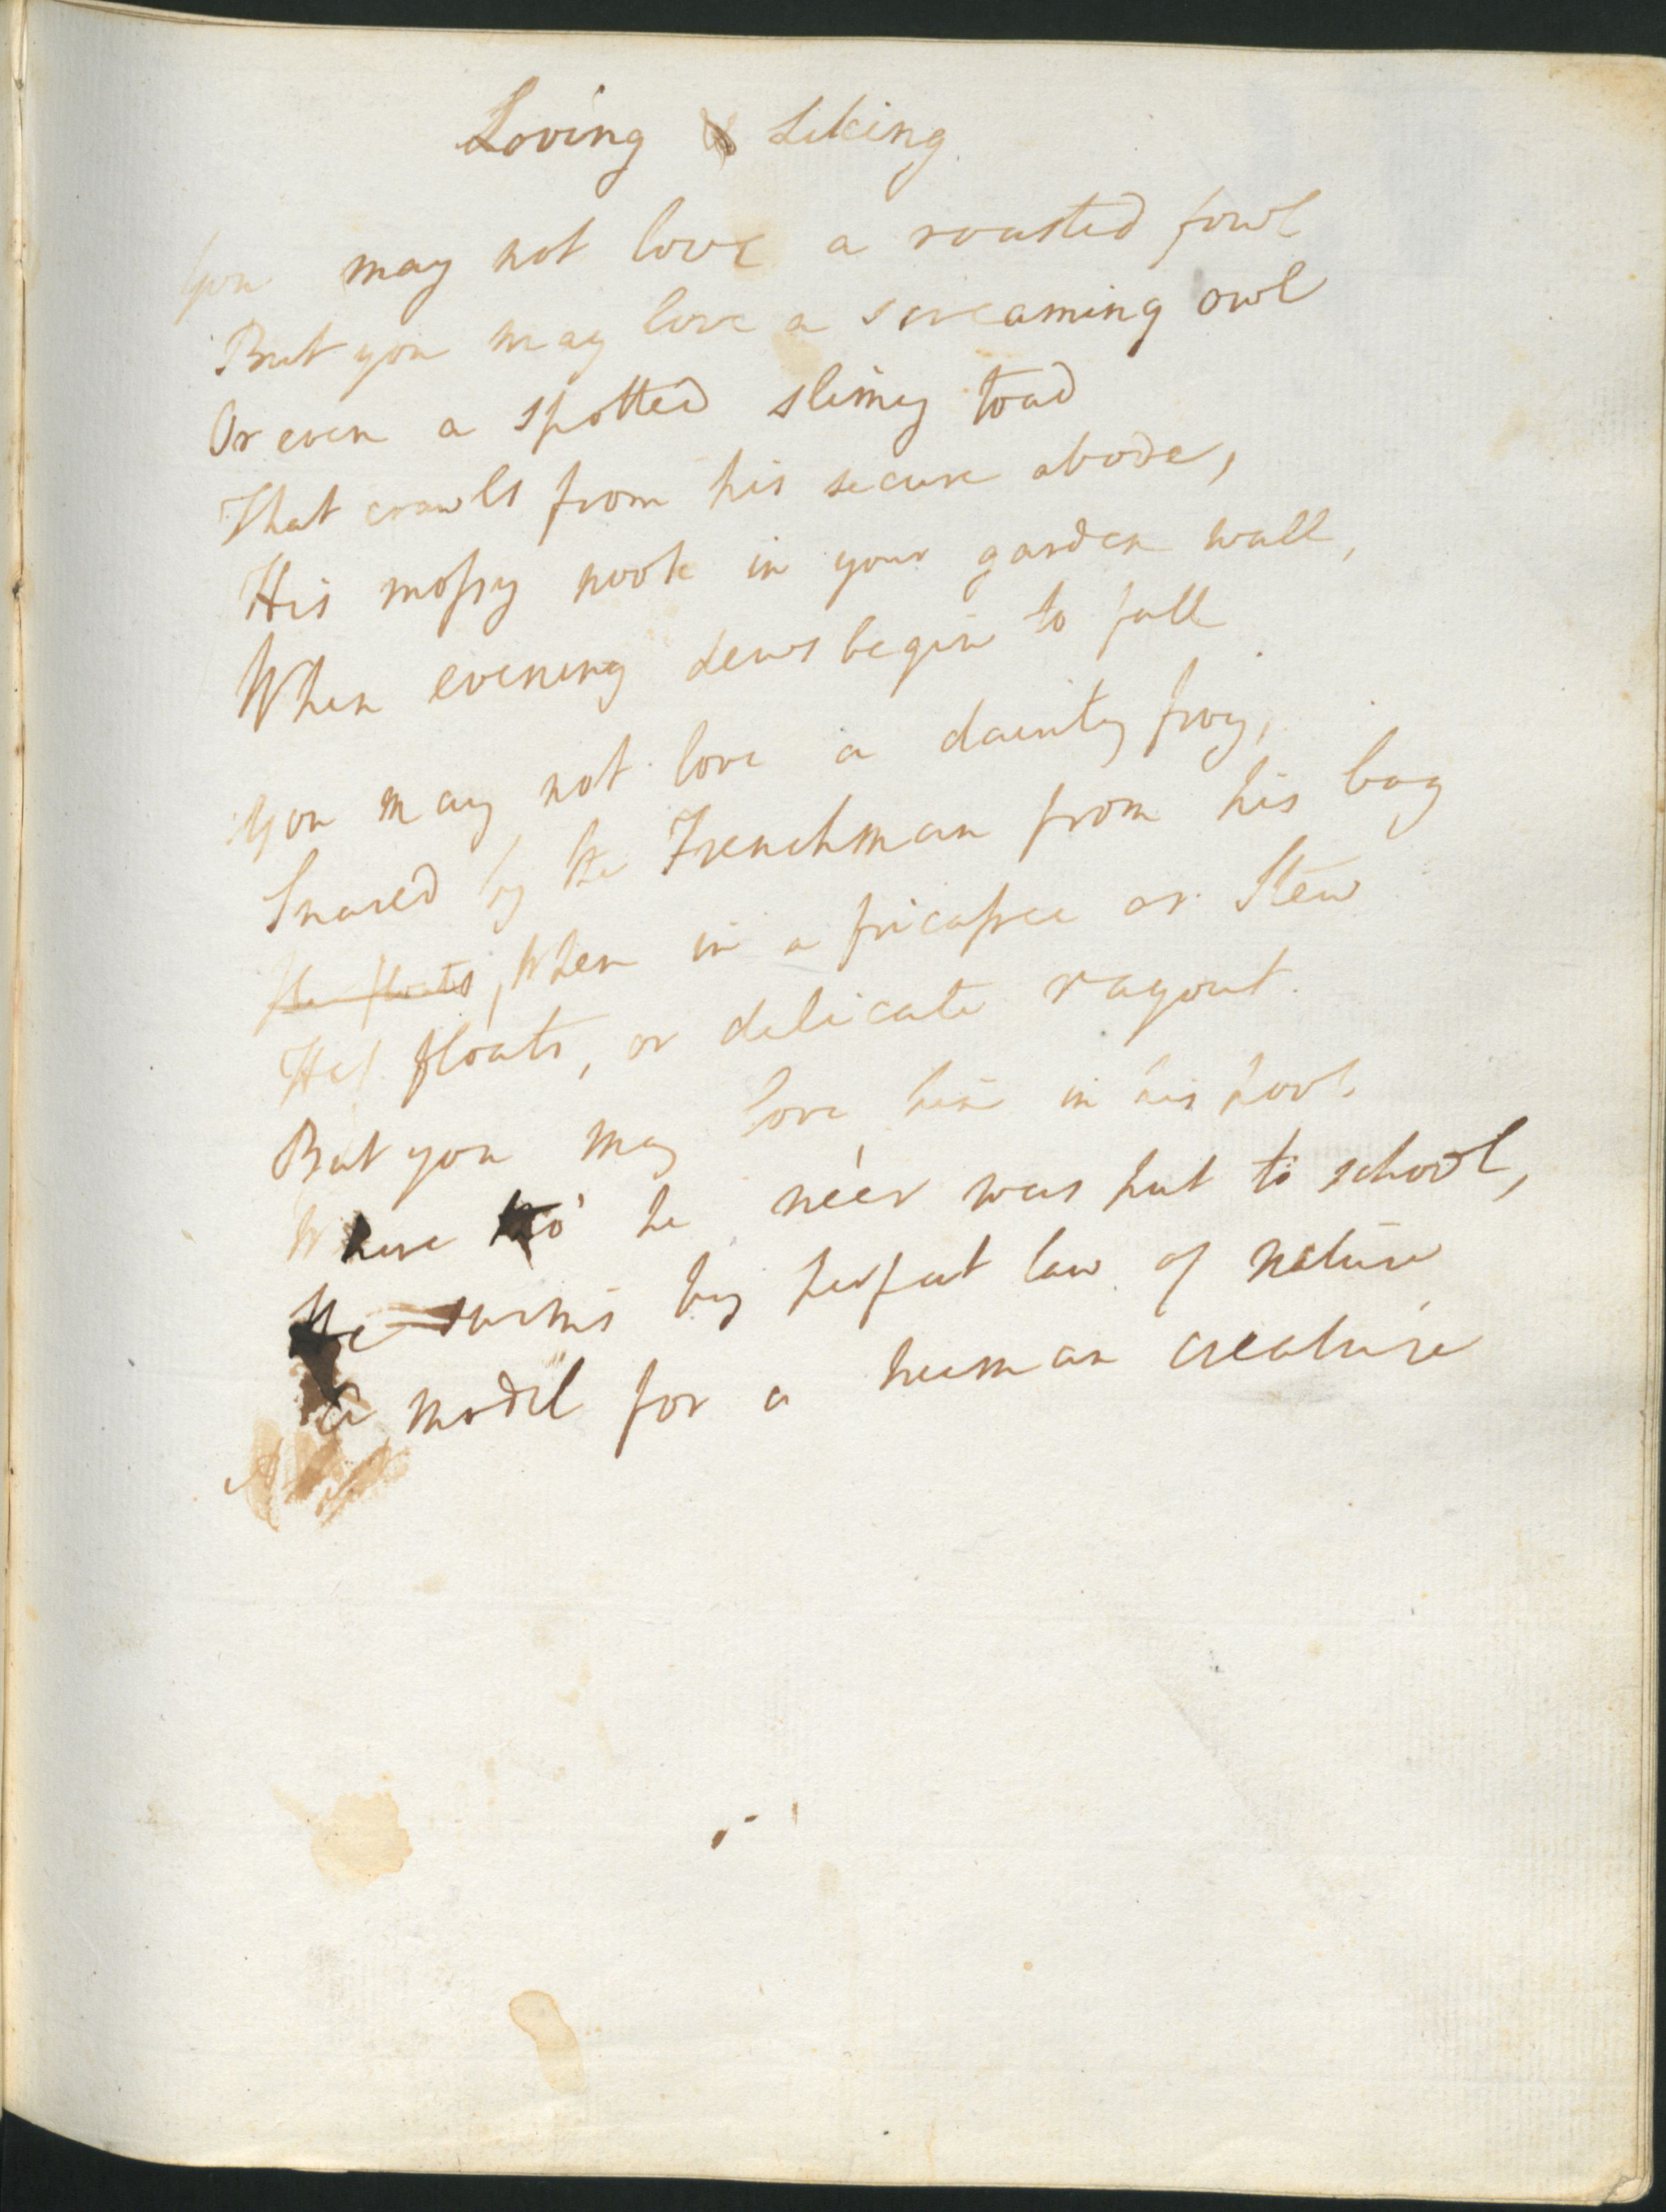 Loving & Liking
You may not love a roasted fowl
But you may love a screaming owl
Or even a spotted slimy toad
That crawls from his secure abode,
His mossy nook in your garden wall,
When evening dews begin to fall
You may not love a dainty frog,
Snared by the Frenchman from his bog
He floats, When in a fricassee or Stew
He floats, or delicate ragout.
But you may love him in his pool
Where tho' he né'er was put to school,
He swims by perfect law of nature
A model for a human creature